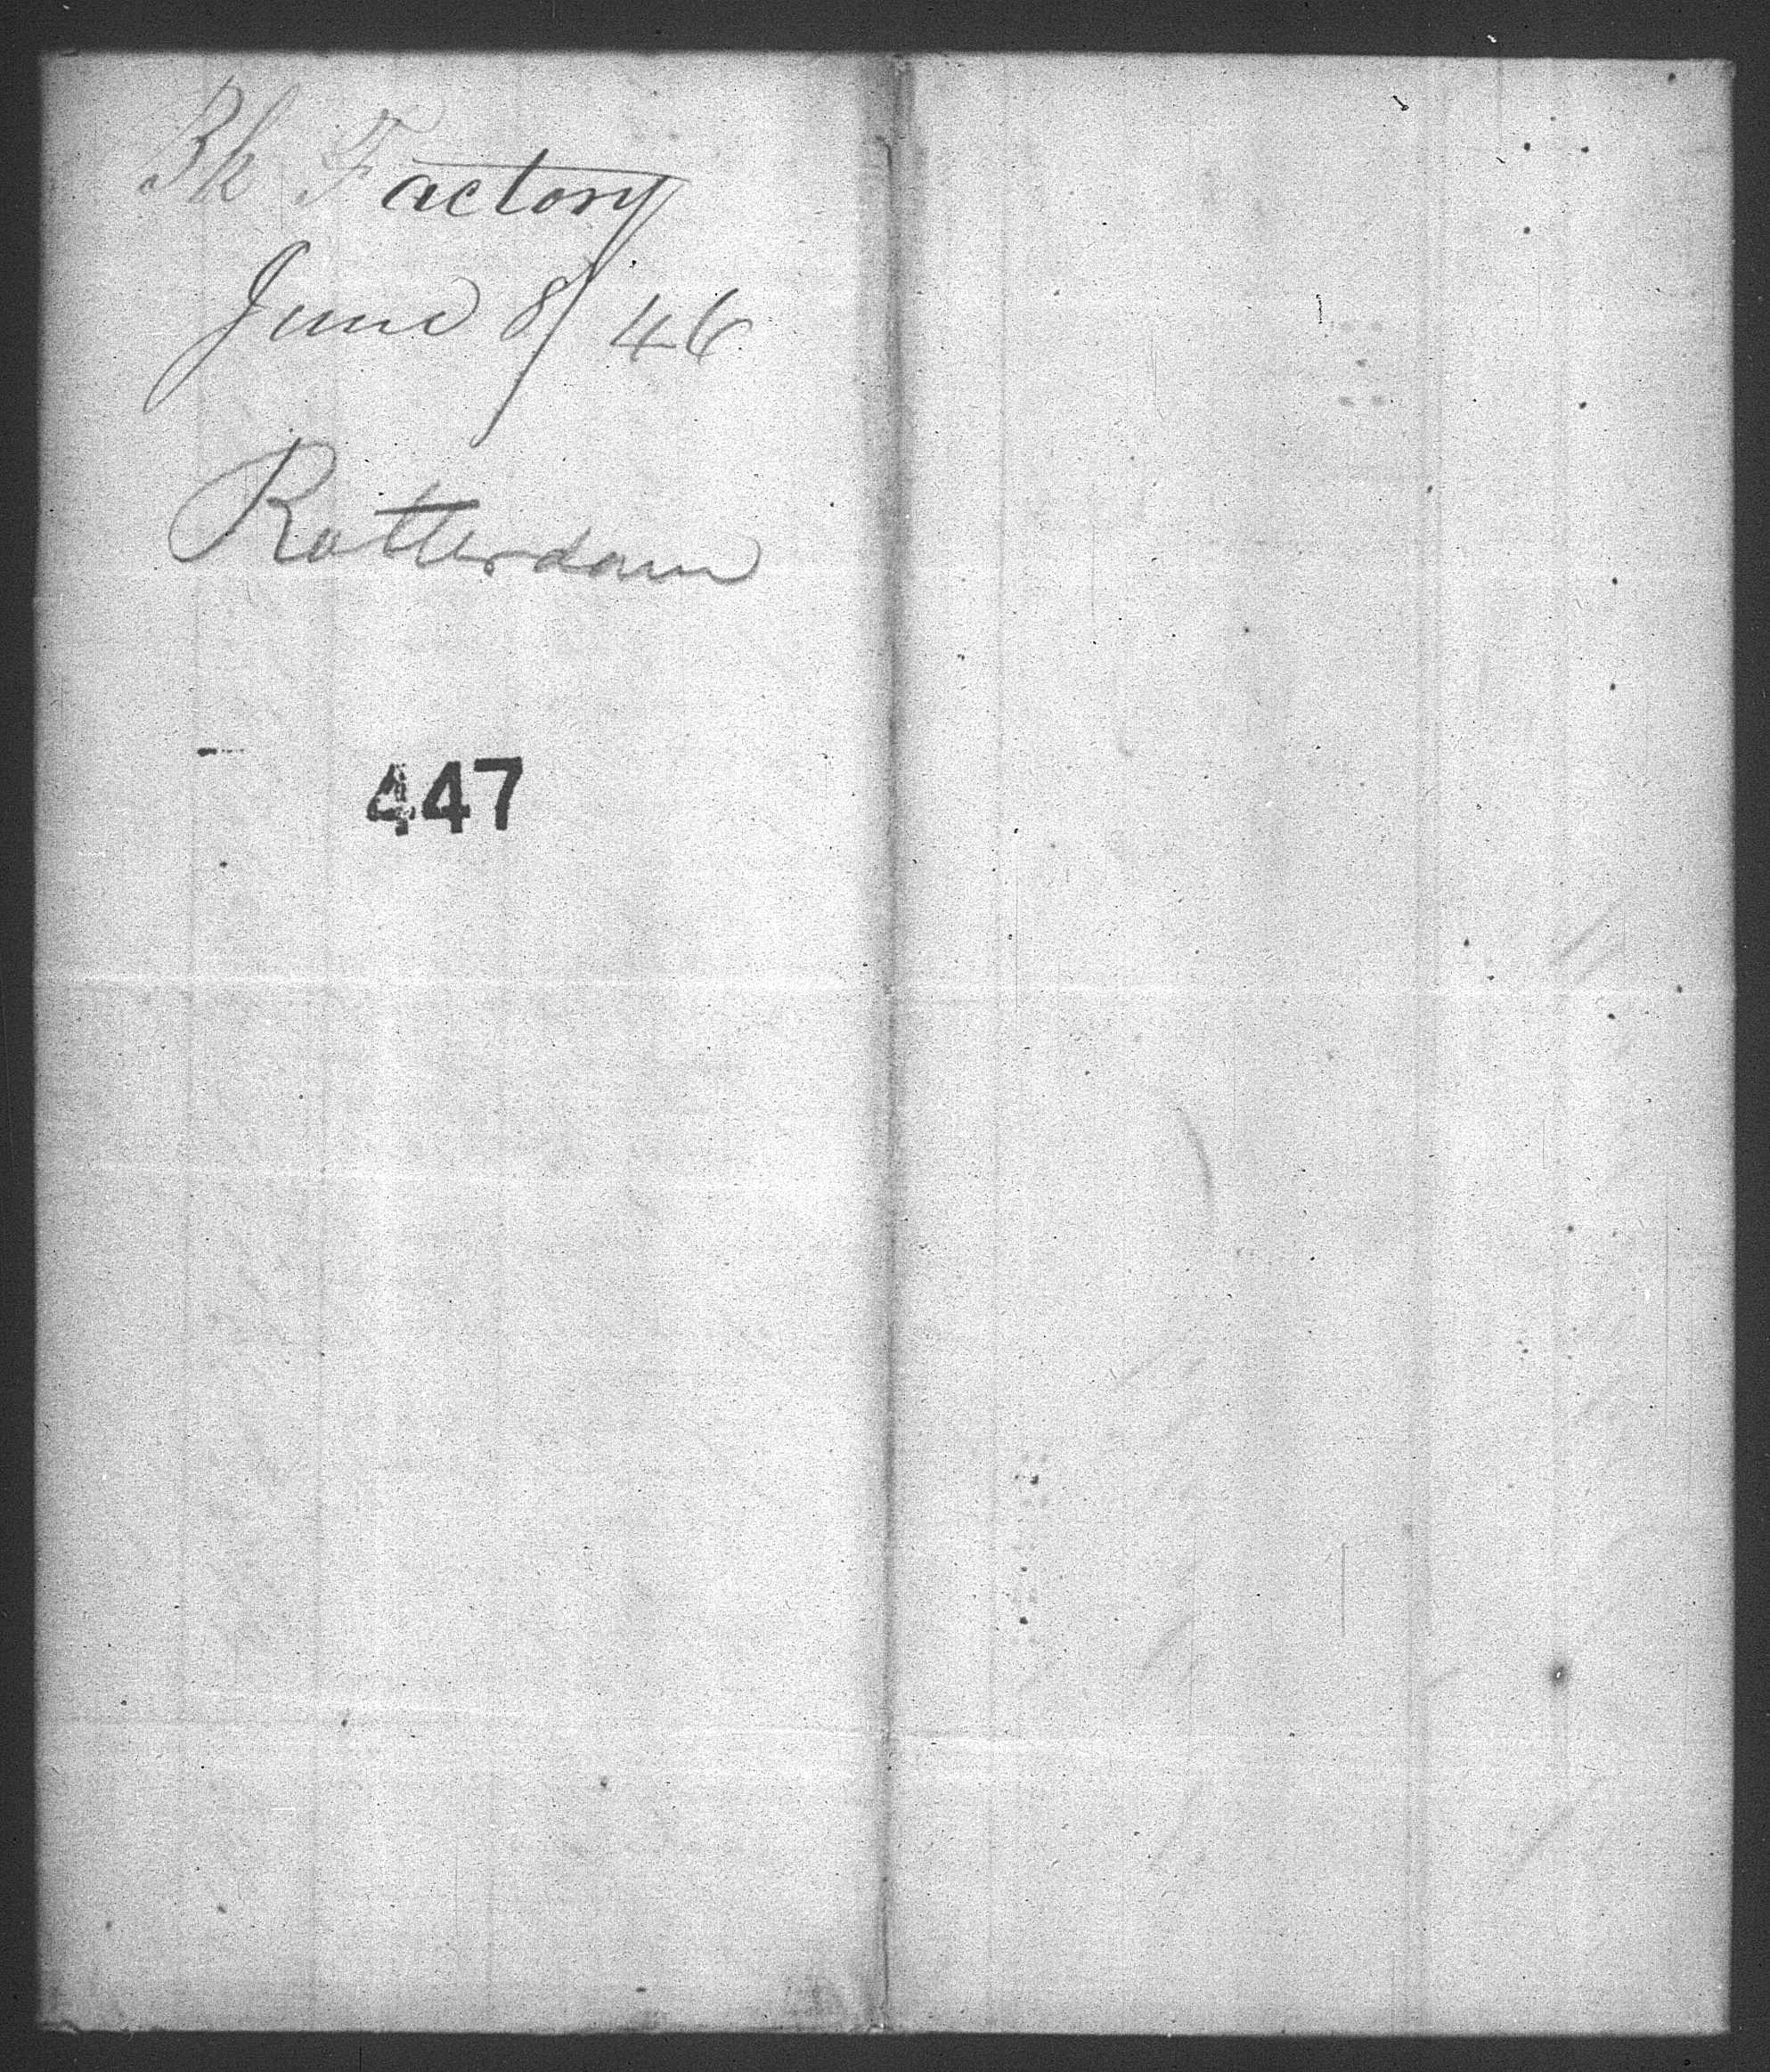 Bk Factory
June 8/46
Rotterdam
447